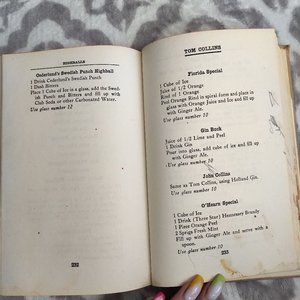 HIGHBALLS
Cederlund's Swedish Punch Highball
1 Drink Cederlund's Swedish Punch
1 Dash Bitters
Place 1 Cube of Ice in a glass, add the Swed-
ish Punch and Bitters and fill up with
Club Soda or other Carbonated Water.
Use glass number 12
232
TOM COLLINS
Florida Special
1 Cube of Ice
Juice of 1 Orange
Rind of 1 Orange
Peel Orange Rind in spiral form and place in
glass with Orange Juice and Ice and fill up
with Ginger Ale.
Use glass number 10
Gin Buck
Juice of 1/2 Lime and Peel
1 Drink Gin
Pour into glass, add cube of ice and fill up
with Ginger Ale.
Use glass number 10
John Collins
Same as Tom Collins, using Holland Gin.
Use glass number 10
O'Hearn Special
1 Cube of Ice
1 Drink (Three Star) Hennessy Brandy
1 Piece Orange Peel
2 Sprigs Fresh Mint
Fill up with Ginger Ale and serve with a
spoon.
Use glass number 10
233